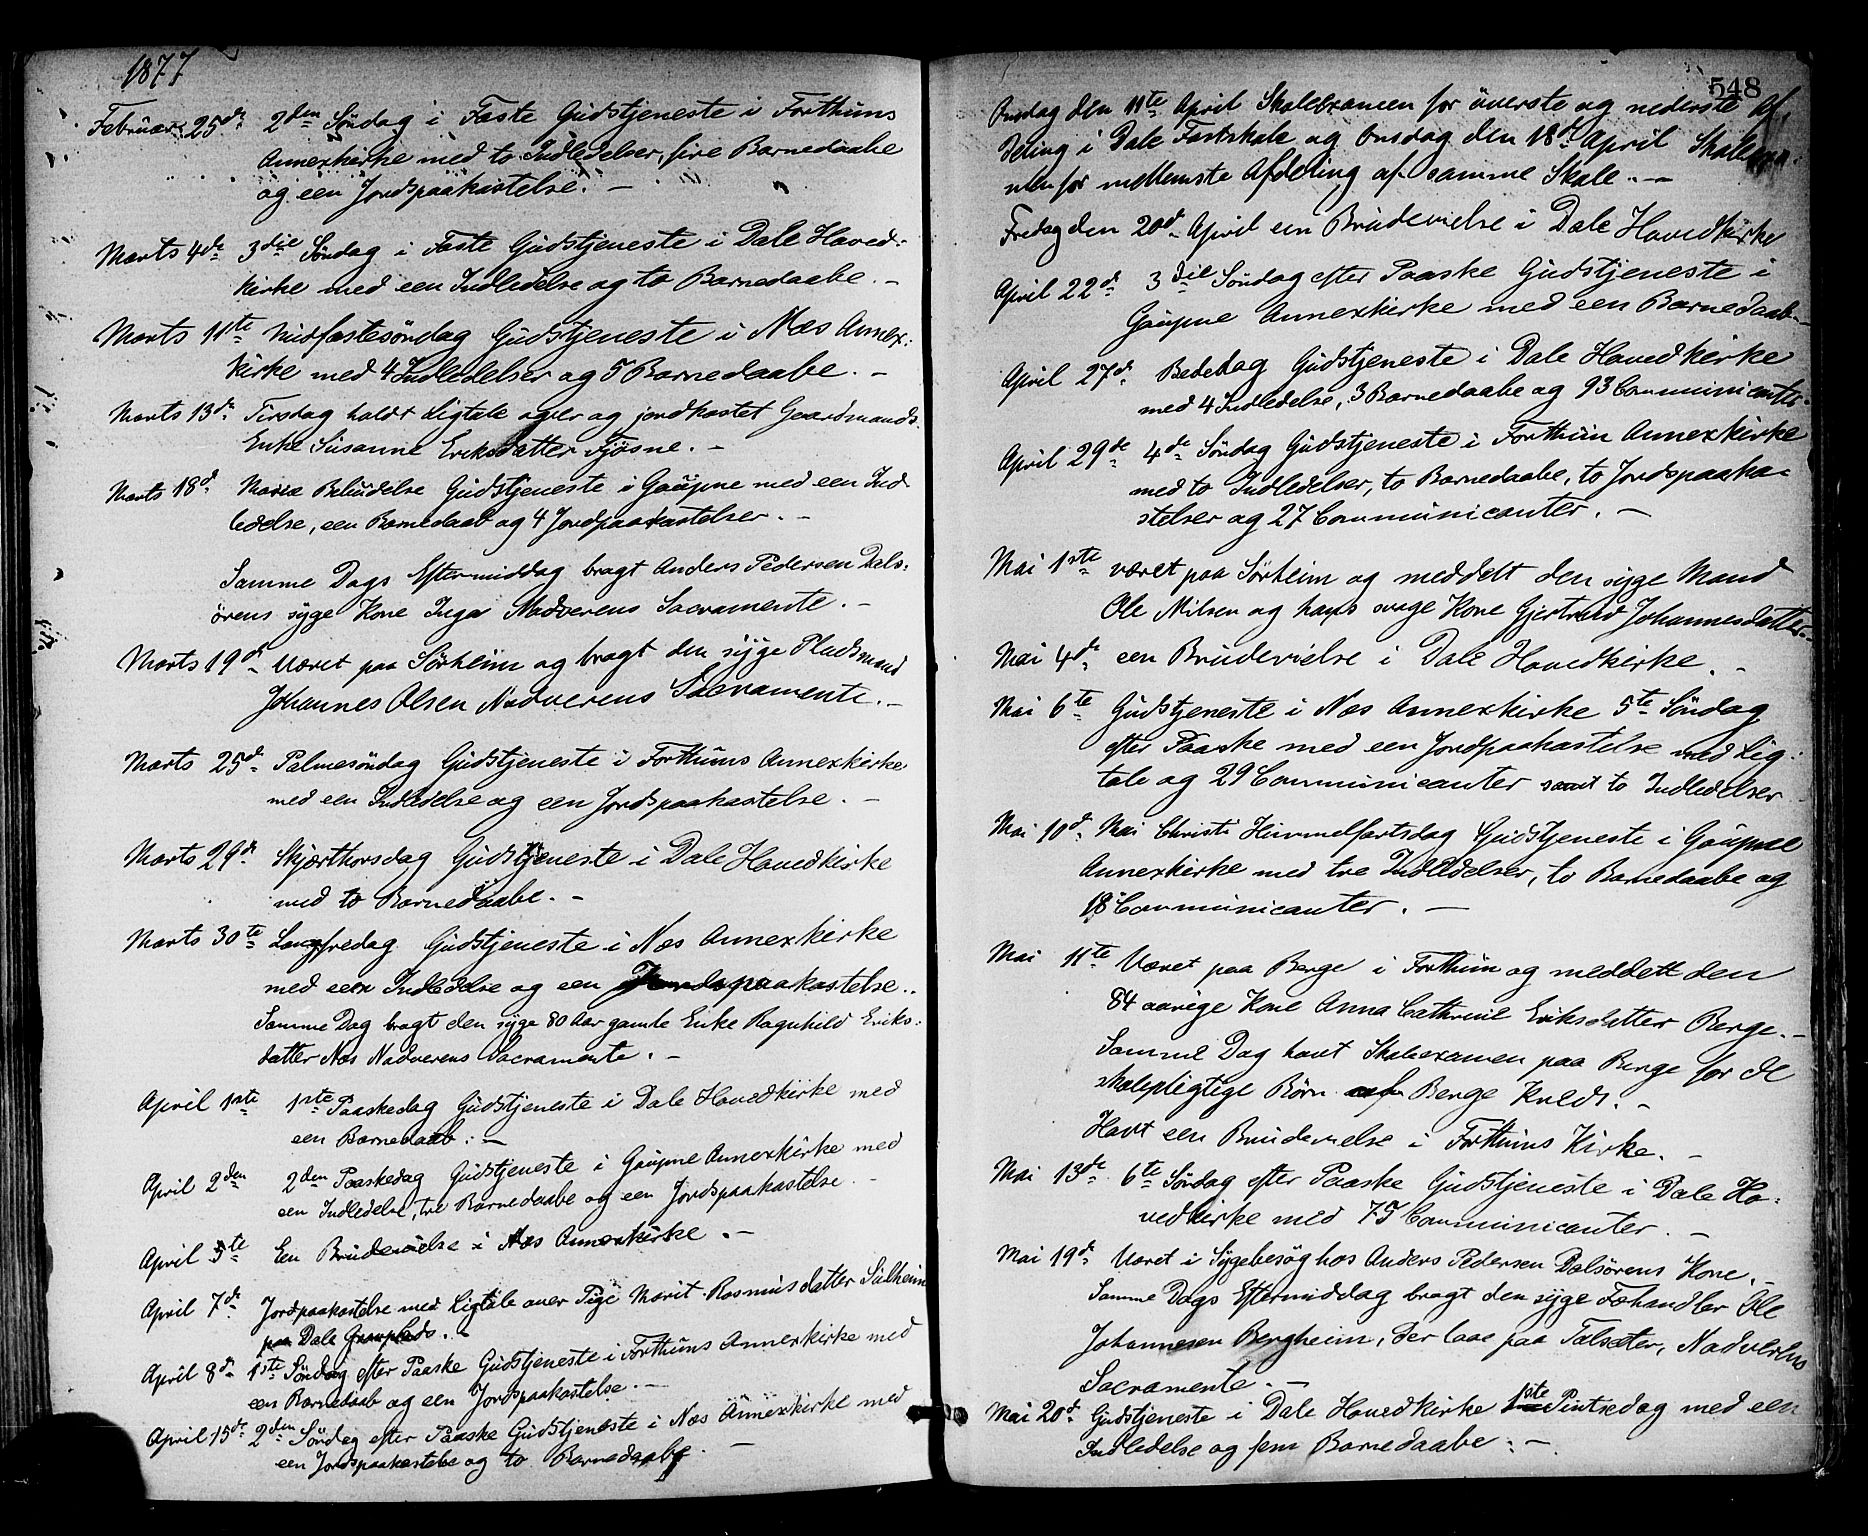 1877
Februar 25de 2den Søndag i Faste Gudstjeneste i Forthuns
Annexkirke med to Indledelser, fire Barnedaabe
og een Jordspaakastelse. –
Marts 4de 3die Søndag i Faste Gudstjeneste i Dale Hoved-
kirke med een Indledelse og to Barnedaabe. –
Marts 11te Midfastesøndag Gudstjeneste i Næs Annex-
kirke med 4 Indledelser og 5 Barnedaabe. –
Marts 13de Tirsdag holdt Ligtale over og jordkastet Gaardmands
Enke Susanne Eriksdatter Fjøsne. –
Marts 18de Mariæ Bebudelse Gudstjeneste i Gaupne med een Ind-
ledelse, een Barnedaab og 4 Jordpaakastelser. –
Samme Dags Eftermiddag bragt Anders Pedersen Dals-
ørens syge Kone Inga Nadverens Sacramente. –
Marts 19de Været paa Sørheim og bragt den syge Pladsmand
Johannes Olsen Nadverens Sacramente. –
Marts 25de Palmesøndag Gudstjeneste i Forthuns Annexkirke
med een Indledelse og een Jordspaakastelse. –
Marts 29de Skjærthorsdag Gudstjeneste i Dale Hovedkirke
med to Barnedaabe. –
Marts 30te Langfredag Gudstjeneste i Næs Annexkirke
med een Indledelse og een Jordspaakastelse.
Samme Dag bragt den syge 80 Aar gamle Enke Ragnhild Eriks-
datter Næs Nadverens Sacramente. –
April 1ste 1ste Paaskedag Gudstjeneste i Dale Hovedkirke med
een Barnedaab. –
April 2den 2den Paaskedag Gudstjeneste i Gaupne Annexkirke med
een Indledelse, tre Barnedaabe og een Jordspaakastelse. –
April 5te Een Brudevielse i Næs Annexkirke. –
April 7de Jordpaakastelse med Ligtale over Pige Marit Rasmusdatter Sulheim
paa Dale –
April 8de 1ste Søndag efter Paaske Gudstjeneste i Forthuns Annexkirke med
een Barnedaab og een Jordspaakastelse. –
April 15de 2den Søndag efter Paaske Gudstjeneste i Næs Annexkirke med
een Jordspaakastelse og to Barnedaabe. –
548
Onsdag den 11te April Skoleexamen for øverste og nederste Af-
deling i Dale Fastskole og Onsdag den 18de April Skoleexa-
men for mellemste Afdeling af samme Skole. –
Fredag den 20de April een Brudevielse i Dale Hovedkirke
April 22de 3die Søndag efter Paaske Gudstjeneste i
Gaupne Annexkirke med een Barnedaab. –
April 27de Bededag Gudstjeneste i Dale Hovedkirke
med 4 Indledelse, 3 Barnedaabe og 93 Communicanter.
April 29de 4de Søndag Gudstjeneste i Forthun Annexkirke
med to Indledelser, to Barnedaabe, to Jordspaaka-
stelser og 27 Communicanter. –
Mai 1ste været paa Sørheim og meddelt den syge Mand
Ole Nilsen og hans svage Kone Gjertrud Johannesdatter. –
Mai 4de een Brudevielse i Dale Hovedkirke. –
Mai 6te Gudstjeneste i Næs Annexkirke 5te Søndag
efter Paaske med een Jordpaakastelse med Lig-
tale og 29 Communicanter samt to Indledelser
Mai 10de Mai Christi Himmelfartsdag Gudstjeneste i Gaupne
Annexkirke med tre Indledelser, to Barnedaabe og
18 Communicanter. –
Mai 11te Været paa Berge i Forthun og meddelt den
84 aarige Kone Anna Cathrine Eriksdatter Berge. –
Samme Dag havt Skoleexamen paa Berge for de
skolepligtige Børn af Berge Kreds. –
Havt een Brudevielse i Forthuns Kirke. –
Mai 13de 6te Søndag efter Paaske Gudstjeneste i Dale Ho-
vedkirke med 75 Communicanter. –
Mai 19de Været i Sygebesøg hos Anders Pedersen Dalsørens Kone. –
Samme Dags Eftermiddag bragt den syge Fæhandler Ole
Johannesen Bergheim, der laae paa Talsæter, Nadverens
Sacramente. –
Mai 20de Gudstjeneste i Dale Hovedkirke 1ste Pintsedag med een
Indledelse og fem Barnedaabe. –